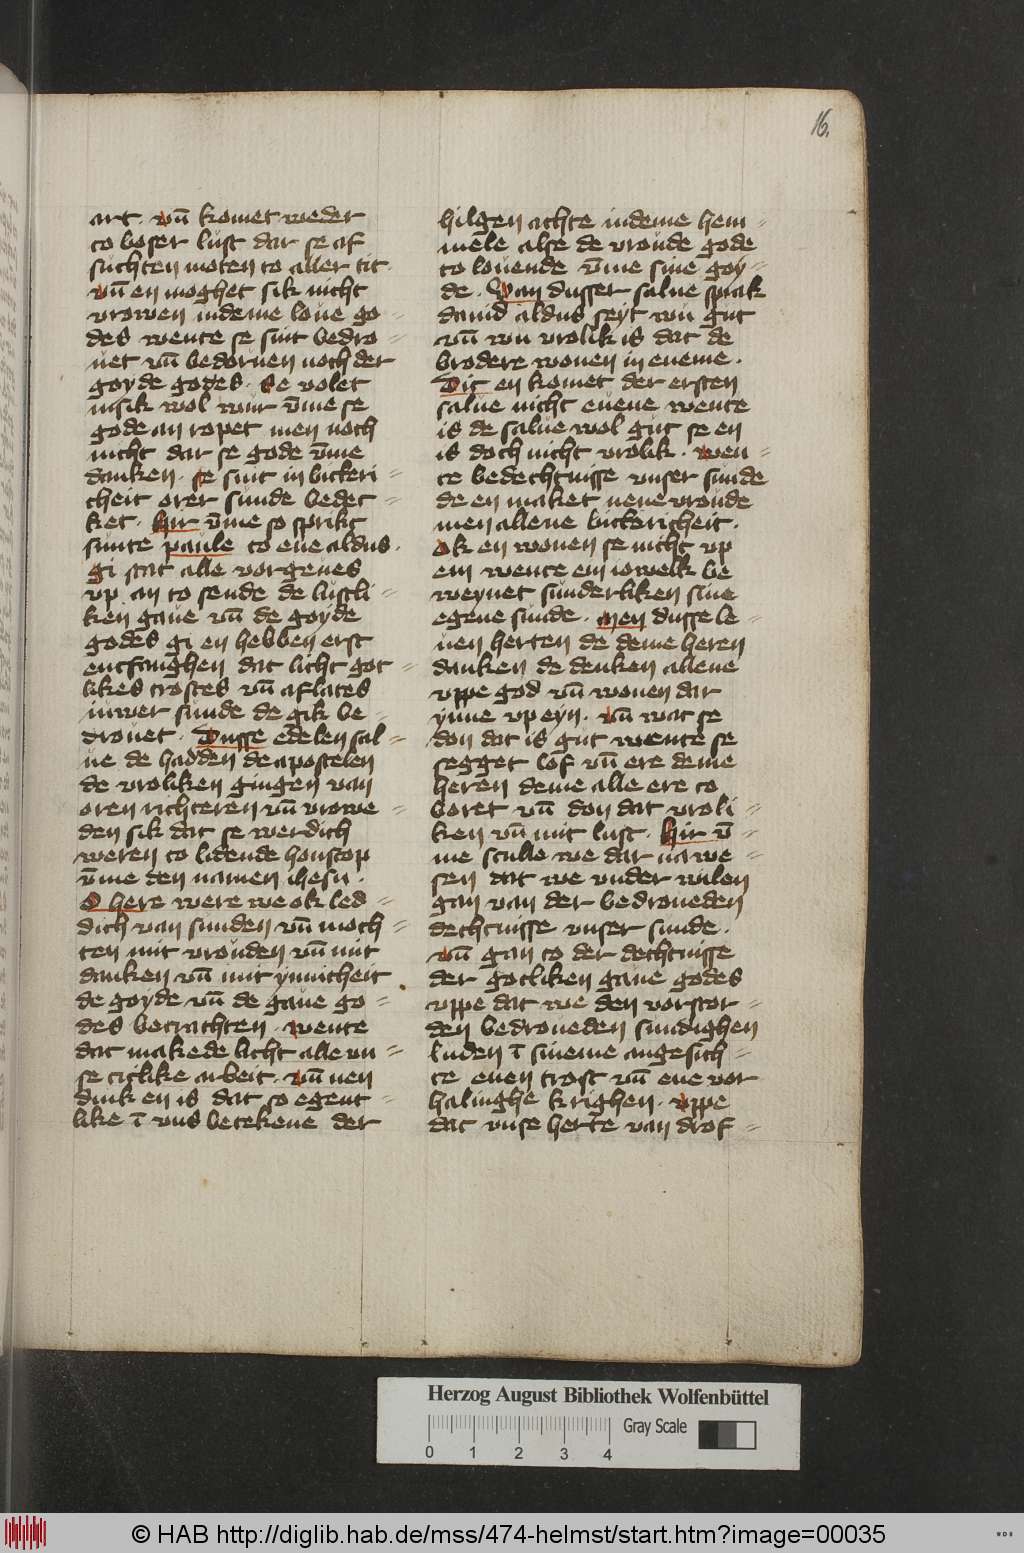 16.
art. vn̄ komet weder
to boser lust dar se af
suchten moten to aller tit.
vn̄ en moghet sik nicht
vrowen indeme loue go=
des wente se sint bedro=
uet vn̄ bedoruen noch der
goyde godes. Se volet
insik wol wur v̄me se
gode an ropet men noch
nicht dar se gode v̄me
danken. se sint in bitteri=
cheit orer sunde bedec=
ket. hir v̄me so sprikt
sunte paule to ene aldus.
gi stat alle vorgeues
vp an to sende de lustli=
ken gaue vn̄ de goyde
godes gi en hebben erst
entfanghen dat licht got=
likes trostes vn̄ aflates
iuwer sunde de gik be
drouet. Dusse edelen sal=
ue de hadden de apostelen
de vroliken gingen van
oren richteren vn̄ vrowe=
den sik dat se werdich
weren to lidende honscop
v̄me den namen ihesu.
O here were we ok led=
dich van sunden vn̄ moch=
ten mit vrouden vn̄ mit
danken vn̄ mit ynnicheit
de goyde vn̄ de gaue go=
des betrachten. wente
dat makede licht alle vn=
se titlike arbeit. vn̄ nen
dink en is dat so egent=
like ī vns betekene der
hilgen achte indeme hem=
mele alse de vroude gode
to louende v̄me sine goy=
de. Van dusser salue sprak
dauid aldus seyt wu gut
vn̄ wu vrolik is dat de
brodere wonen in eneme.
Dit en komet der ersten
salue nicht euene wente
is de salue wol gut se en
is doch nicht vrolik. wen=
te bedechtnisse vnser sunde
de en maket nene vroude
men allene bittericheit.
Ok en wonen se nicht vp
ein wente ein iowelk be
weynet sunderliken sine
egene sunde. Men dusse le=
uen herten de deme heren
danken de denken allene
vppe god vn̄ wonen dar
ynne vp eyn. vn̄ wat se
don dat is gut wente se
segget lof vn̄ ere deme
heren deme alle ere to
boret vn̄ don dat vroli=
ken vn̄ mit lust. hir v̄=
me sculle we dar na we=
sen dat we vnder wilen
gan van der bedroueden
dechtnisse vnser sunde.
vn̄ gan to der dechtnisse
der gotliken gaue godes
vppe dat we den vorstor=
den bedroueden sundighen
luden ī sineme angesich=
te enen trost vn̄ ene vor
halinghe krighen. vppe
dat vnse herte van drof=
Herzog August Bibliothek Wolfenbüttel
0 1 2 3 4
Gray Scale
© HAB http://diglib.hab.de/mss/474-helmst/start.htm?image=00035